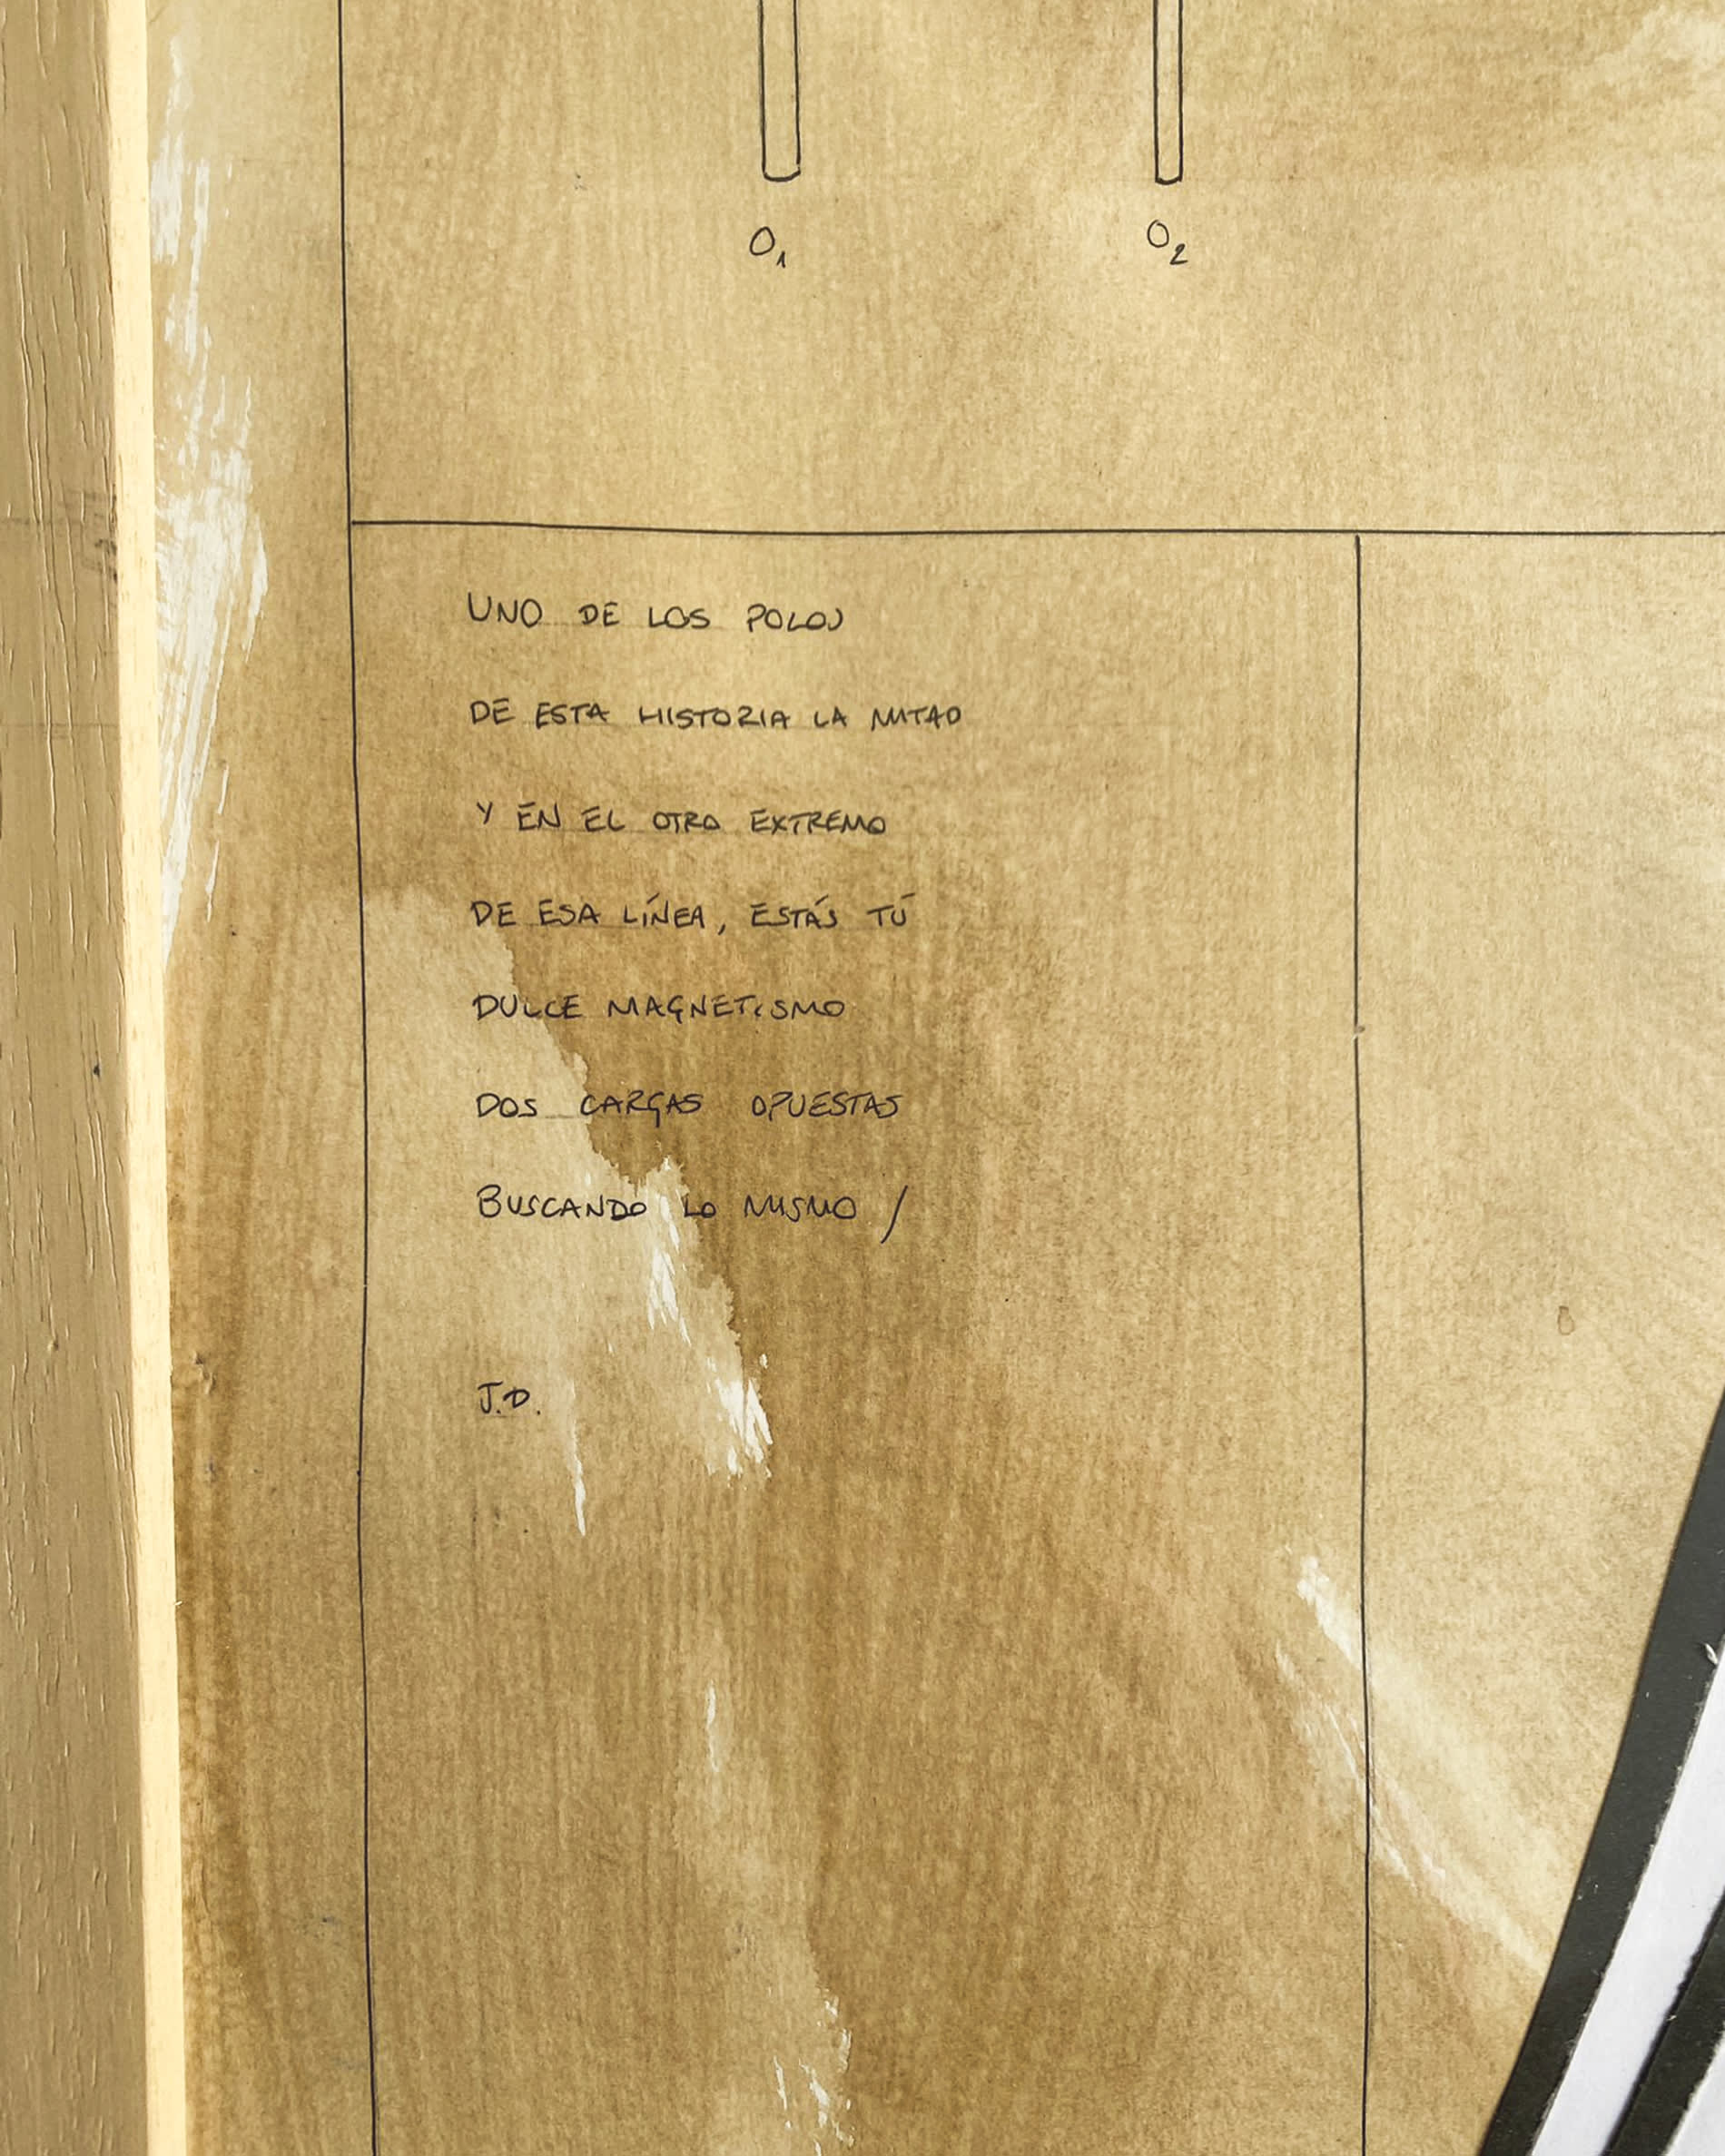 O₁ O₂
UNO DE LOS POLOS
DE ESTA HISTORIA LA MITAD
Y EN EL OTRO EXTREMO
DE ESA LÍNEA, ESTÁS TÚ
DULCE MAGNETISMO
DOS CARGAS OPUESTAS
BUSCANDO LO MISMO /
J.D.